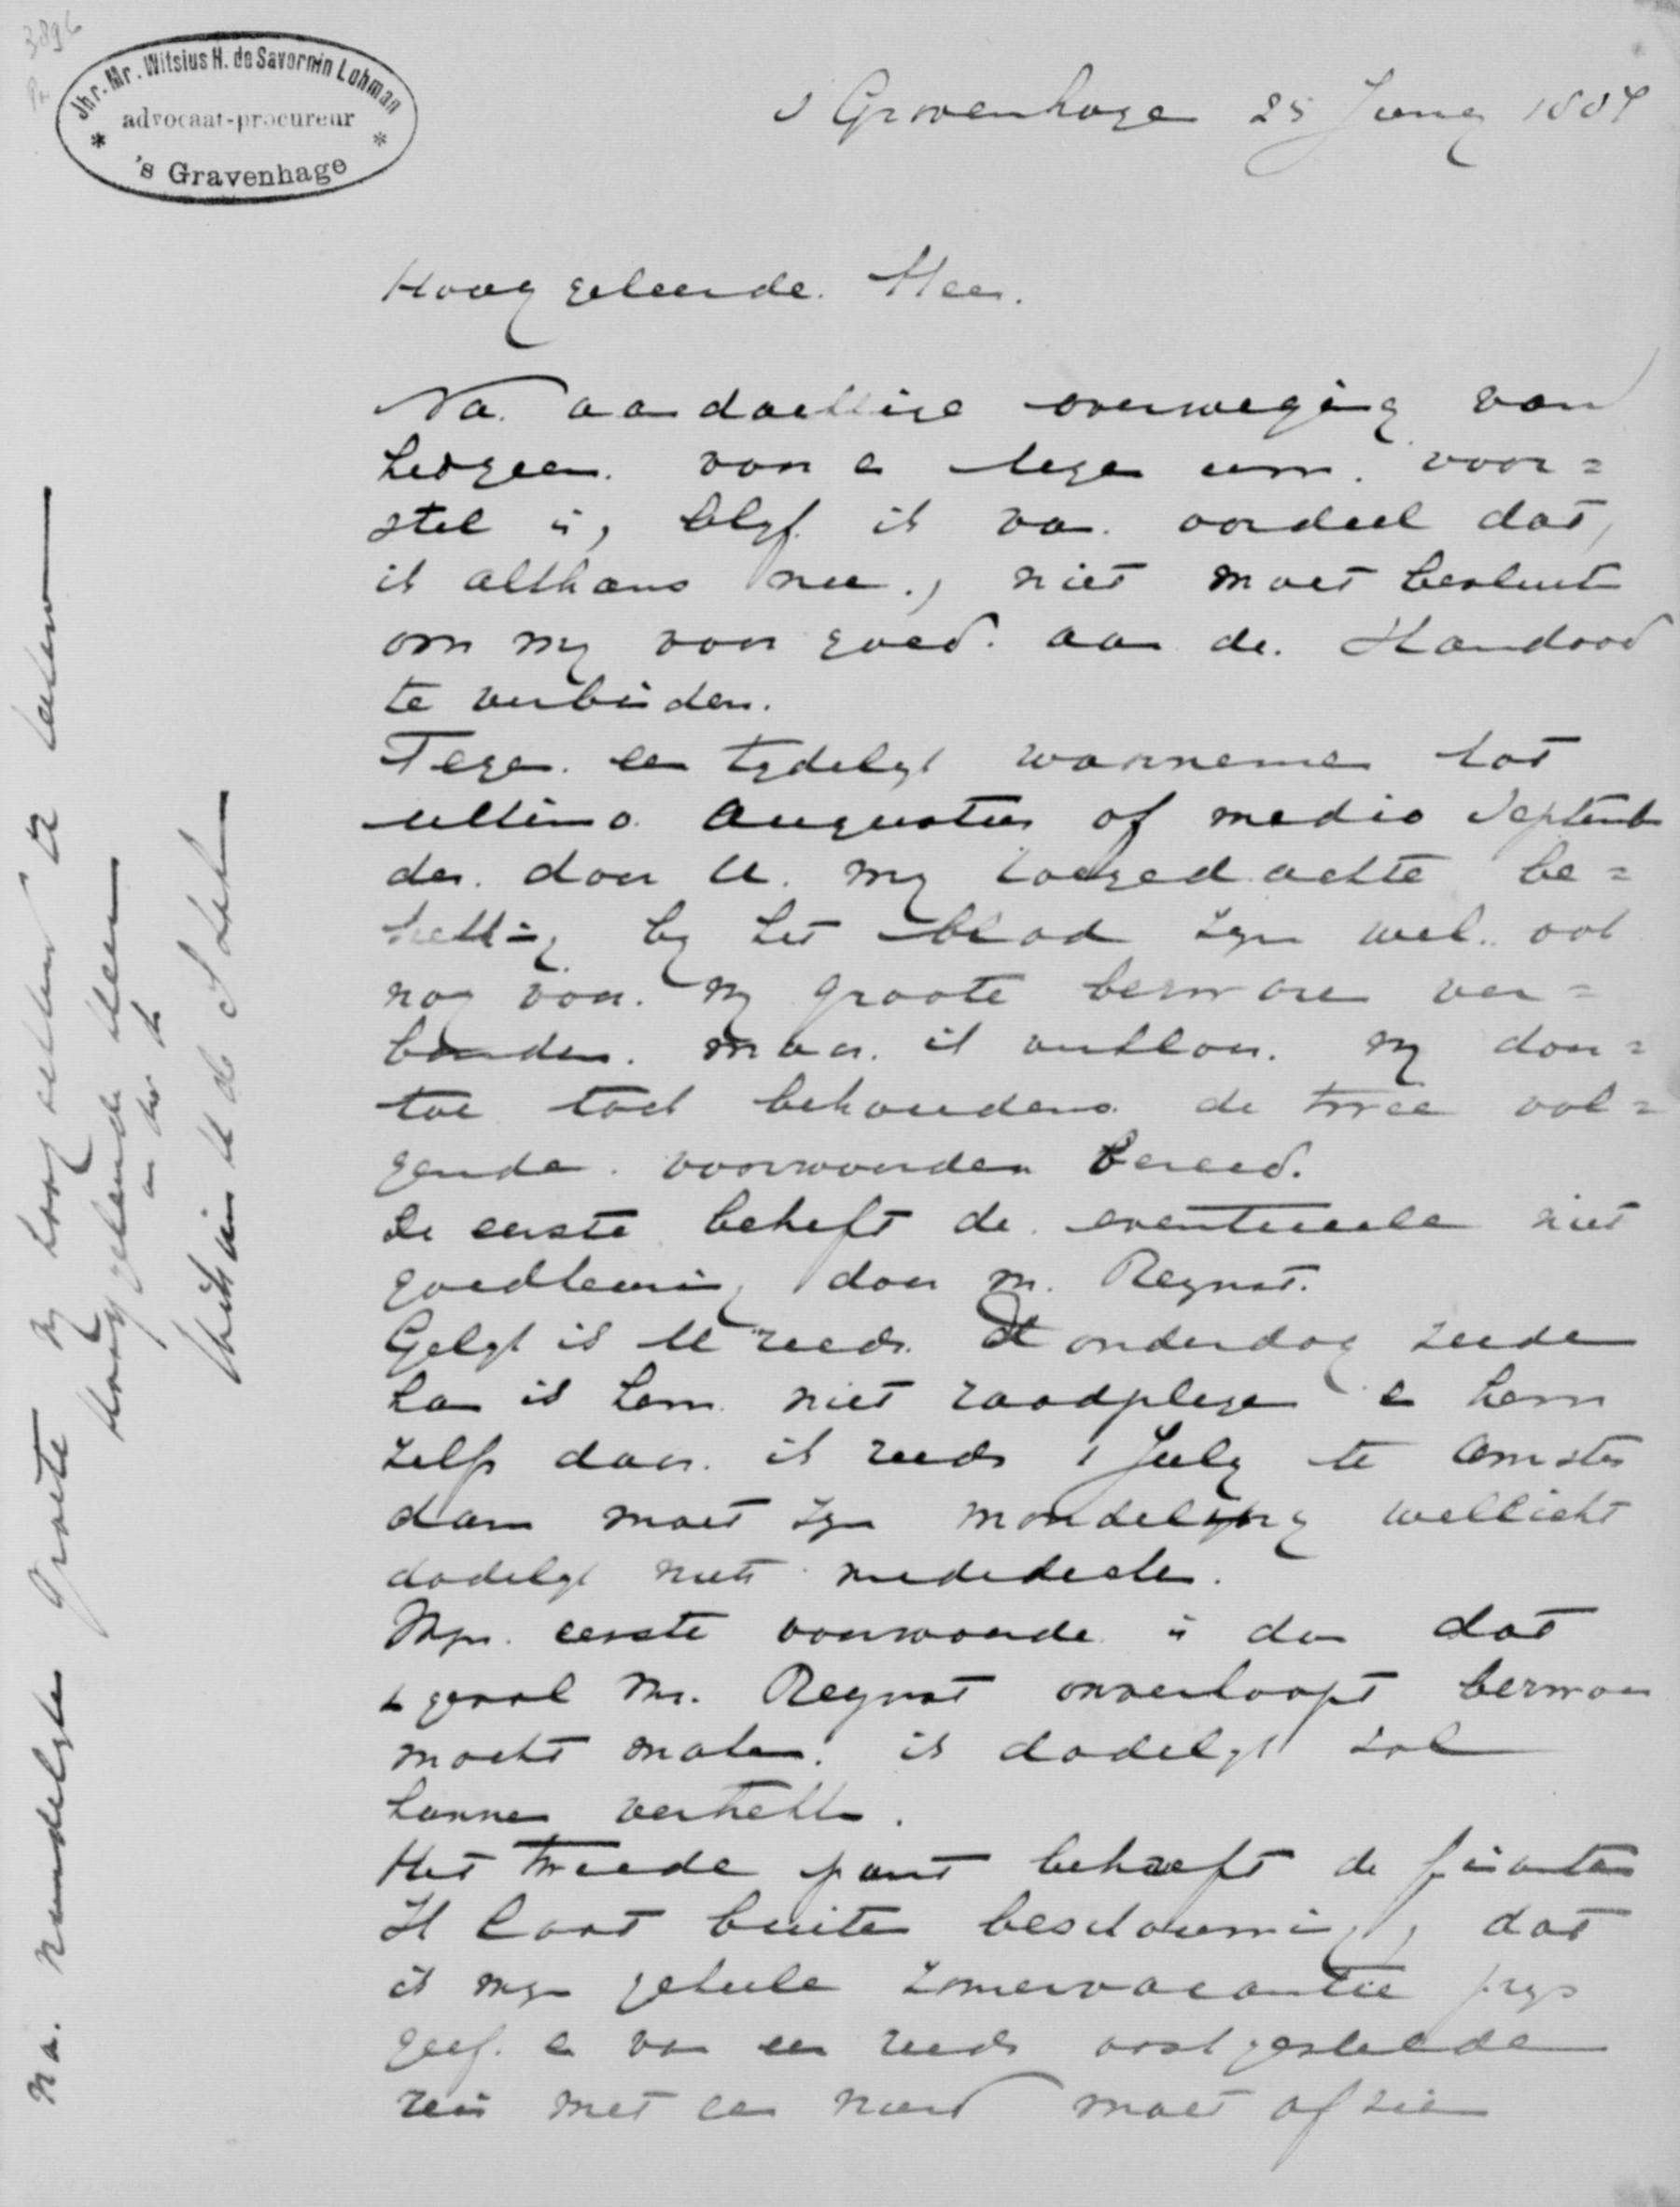 3896
Jhr. Mr. Witsius H. de Savornin Lohman
advocaat-procureur
's Gravenhage
s Gravenhage 25 Juny 1887
Hoog geleerde Heer.
Na aandachtige overweging van
hetgeen voor en tegen uw voor=
stel is, blyf ik van oordeel dat,
ik althans nu, niet moet besluit
om my voor goed aan de Standaard
te verbinden.
Tegen een tydelyk waarnemen tot
ultimo Augustus of medio Septemb
der door U my toegedachte be=
trekking by het blad zyn wel ook
nog voor my groote bezwaren ver=
bonden. maar ik verklaar my daar=
toe toch behoudens de twee vol=
gende voorwaarden bereid.
De eerste betreft de eventueele niet
goedkeuring door m. Reynst.
Gelyk ik U reeds Donderdag zeide
kan ik hem niet raadplegen en hem
zelfs daar ik reeds 1 July te Amster
dam moet zyn mondeling wellicht
dadelyk niets mededeelen.
Myn eerste voorwaarde is dan dat
ingeval Mr. Reynst onverhoopt bezwaar
mocht maken ik dadelyk zal
kunnen vertrekken.
Het tweede punt betreft de finantien
Ik laat buiten beschouwing, dat
ik myn geheele zomervacantie prys
geef en van een reeds vastgestelde
reis met een neef moet afzien
na vriendelyke groete
Hooggeleerde Heer